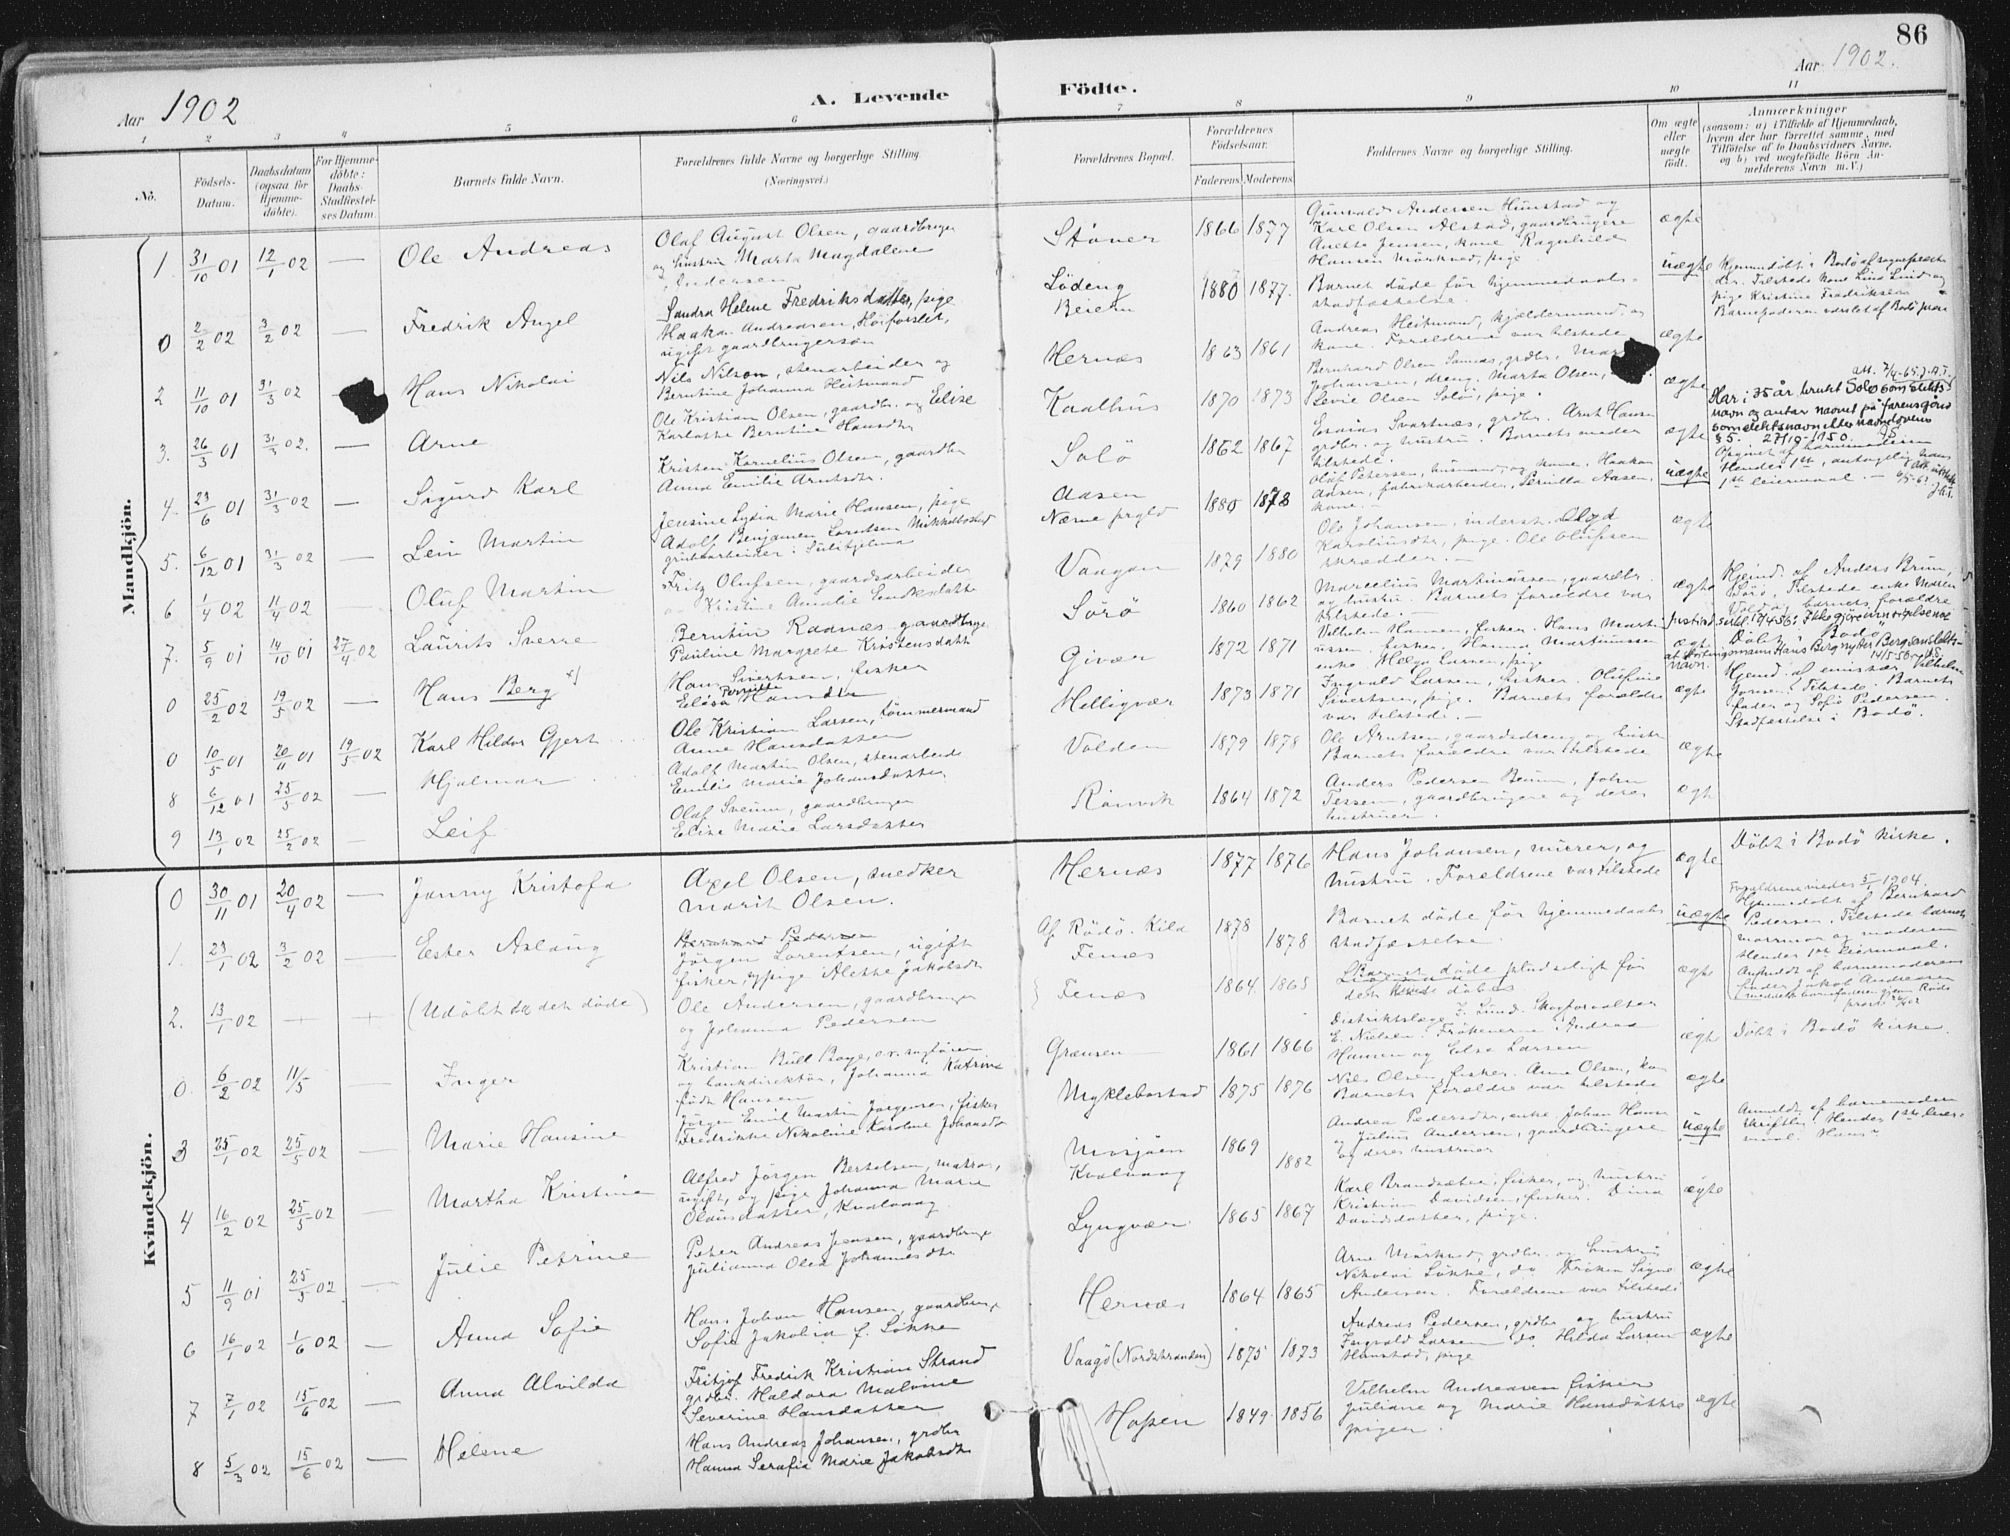 86
Aar 1902
A. Levende
Födte.
Aar 1902.
1 2 3 4 5 6 7 8 9 10 11
No.
Födsels-
Datum.
Daabsdatum
(ogsaa for
Hjemme-
döbte).
For Hjemme-
döbte:
Daabs-
Stadfæstel-
ses Datum.
Barnets fulde Navn.
Forældrenes fulde Navne og borgerlige Stilling.
(Næringsvei.)
Forældrenes Bopæl.
Forældrenes
Födselsaar.
Faderens Moderens
Faddernes Navne og borgerlige Stilling.
Om ægte
eller
uægte
födt.
Anmærkninger
(saasom: a) i Tilfælde af Hjemmedaab,
hvem der har forrettet samme, med
Tilföielse af to Daabsvidners Navne,
og b) ved uægtefödte Börn An-
melderens Navn m.V.)
Mandkjön.
1. 31/10 01 12/1 02 — Ole Andreas
Olaf August Olsen, gaardbruger
og hustru Marta Magdalene
Andersen
Stöver 1866 1877
Gunvald Andersen Hunstad og
Karl Olsen Alstad, gaardbrugere
Anette Jensen, kone Ragnhild
Hansen Mörkved, pige
ægte
0 2/2 02 3/2 02 — Fredrik Angel
Sandra Helene Fredriksdatter, pige
Haakon Andreasen, Höiforslet,
ugift gaardbrugersön
Löding
Beiern 1880 1877.
Barnet döde för hjemmedaabs-
stadfæstelse.
uægte
Hjemmedöbt i Bodö af sognepræst
Barnefaderen
2 11/10 01 31/3 02 Hans Nikolai
Nils Nilsen, stenarbeider og
Berntine Johanna Heitmand
Hernæs 1863 1861
Andreas Heitmand, kjeldermand, og
kone. Forældrene var tilstede
ægte
3. 26/3 01 31/3 02. — Arne
Ole Kristian Olsen, gaardbr. og Elise
Karlotte Berntine Hansdtr
Kaalhus 1870 1873
Bernhard Olsen
Johansen, dreng, Marta Olsen,
Levie Olsen Solöi, pige.
ægte
Har i 35 år brukt Solö som slekts-
navn og antar navnet på farensgård
som slektsnavn etter navnelovens
§ 5. 27/10-1950.
4. 23/6 01 31/3 02 — Sigurd Karl
Kristen Kornelius Olsen, gaardbr
Anna Emilie Arntsdtr.
Solö 1862 1867
Esaias Svartnæs, grdbr. Arnt Hansen
grdbr. og hustru. Barnets moder
tilstede.
ægte
5. 6/12 01 31/3 02 — Leiv Martin
Jensine Lydia Marie Hansen, pige
Adolf Benjamin Lorntsen Mikkelbostad
grubearbeider i Sulitjelma
Aasen
Næsne prgld 1880 1878
Olaf Petersen, husmand, og kone. Haakon
Aasen, fabrikarbeider, Pernilla Aasen,
kone.
uægte
Opgivet af barnemoderen
Hendes 1ste, antagelig hans
1ste leiermaal. —
6 1/4 02 11/4 02 — Oluf Martin
Fritz Olufsen, gaardsarbeider
og Kristine Amalie Enoksdatter
Vaagan 1879 1880
Ole Johansen, inderst.
Karoliusdtr, pige. Ole Olufsen
skrædder. —
ægte
7. 5/9 01 14/10 01 27/4 02 Laurits Sverre
Berntin Radnæs gaardbruger
Pauline Margrete Kristensdatt
Sörö 1860 1862
Marcelius Martinussen, gaardbr.
og hustru. Barnets forældre var
tilstede. —
ægte
Hjemd. af Anders Brun,
Sörö, Tilstede enke Maren
Vold og barnets forældre
0 25/2 02 19/5 02 — Hans Berg x)
Hans Sivertsen, fisker
Elisa Pernitte Hansdtr
Givær 1872 1871
Vilhelm Hansen, fisker. Hans Mart-
ussen, fisker. Hanna Martinussen
enke Helga Larsen, pige
ægte
Döbt i Bodö
0 10/5 01 20/11 01 19/5 02 Karl Hildor Gjert
Ole Kristian Larsen, tömmermand
Anne Hansdatter
Helligvær 1873 1871
Ingvald Larsen, fisker. Olufine
Sivertsen, pige. Barnets forældre
var tilstede. —
ægte
Hjemd. af emissær Vilhelm
Jensen. Tilstede: Barnets
fader og Sofie Pedersen.
Stadfæstelse i Bodö.
8 6/12 01 25/5 02 — Hjalmar
Adolf Martin Olsen, stenarbeider
Emilie Marie Johansdatter
Volden 1879 1878
Ole Arntsen, gaardsdreng og hustr
Barnets forældre var tilstede
ægte
9 13/1 02 25/2 02 — Leif
Olaf Sveum, gaardbruger
Elise Marie Larsdatter
Rönvik 1864 1872
Anders Pedersen Beum, John
Tessem, gaardbrugere og deres
hustruer.
ægte
Kvindekjön.
0 30/11 01 20/4 02 — Janny Kristofa
Axel Olsen, snedker
Marit Olsen.
Hernæs 1877 1876
Hans Johansen, murer, og
hustru. Forældrene var tilstede
ægte
Döbt i Bodö kirke.
1. 23/1 02 3/2 02 — Ester Aslaug
Bernhard Pedersen
Jörgen Lorentsen, ugift
fisker, pige Alette Jakobsdtr
Af Rödö. Kila
Fenes 1878 1878
Barnet döde för hjemmedaabs
stadfæstelse.
uægte
Forældrene viedes 5/1 1904.
Hjemmedöbt af Bernhard
Pedersen. Tilstede barnets
mormor og moderen
Hendes 1ste Leiermaal.
Anmeldt af barnemoderens
fader Jakob Andreasen
2. 13/1 02 + + (Udöbt da det döde)
Ole Andersen, gaardbruger
og Johanna Pedersen
Fenæs 1864 1865
Barnet döde pludseligt för
det kunde döbes
ægte
0. 6/2 02 11/5 — Inger
Kristian Bull Boye, o.r. sagförer
og bankdirektör, Johanna Katrine
födt Hansen
Grænsen 1861 1866
Distriktslæge J. Lund. Skogforvalter
E. Nielsen. Frökenerne Andrea
Hansen og Elsa Larsen
ægte
Döbt i Bodö kirke.
3 25/1 02 25/5 02 — Marie Hansine
Jörgen Emil Martin Jörgensen, fisker
Fredrikke Nikoline Karoline Johansdtr
Myklebostad 1875 1876
Nils Olsen, fisker. Anne Olsen, kon
Barnets forældre var tilstede
ægte
4 16/2 02 25/5 02 — Martha Kristine
Alfred Jörgen Bertelsen, matros,
ugift, og pige Johanna Marie
Olausdatter, Kvalvaag
Mosjöen
Kvalvaag 1869 1882
Andrea Pedersdtr, enke, Johan Hansen
og Julius Andersen, gaardbrugere
og deres hustruer
uægte
Anmeldt af barnemoderen
skriftlig. Hendes 1ste leier-
maal. Hans
5 11/9 01 25/5 02 — Julie Petrine
Peter Andreas Jensen, gaardbruge
Julianna Olea Johannesdtr
Lyngvær 1865 1867
Karl Brandsæter, fisker, og hustru
Kristian Davidsen, fisker. Dina
Davidsdatter, pige.
ægte
6 16/1 02 1/6 02 — Anna Sofie
Hans Johan Hansen, gaardbruge
Sofie Jakobia f. Lökke
Hernæs 1864 1865
Arne Mörkved, grdbr. og hustru
Nikolai Lökke, do Fröken Signe
Andersen. Forældrene var tilstede
ægte
7 7/1 02 15/6 02 — Anna Alvilda
Fritjof Fredrik Kristian Strand
grdbr. Haldora Malvine
Severine Hansdatter
Vaagö (Nordstranden) 1875 1873
Andreas Pedersen, grdbr og hustru
Ingvald Larsen do. Hilda Larsen
Hunstad, pige
ægte
8 5/3 02 15/6 02 — Helene
Hans Andreas Johansen, grdbr
Hanna Serafia Marie Jakobsdtr
Hopen 1849. 1856
Vilhelm Andreasen fisker
Juliane og Marie Hansdöttre
piger.
ægte